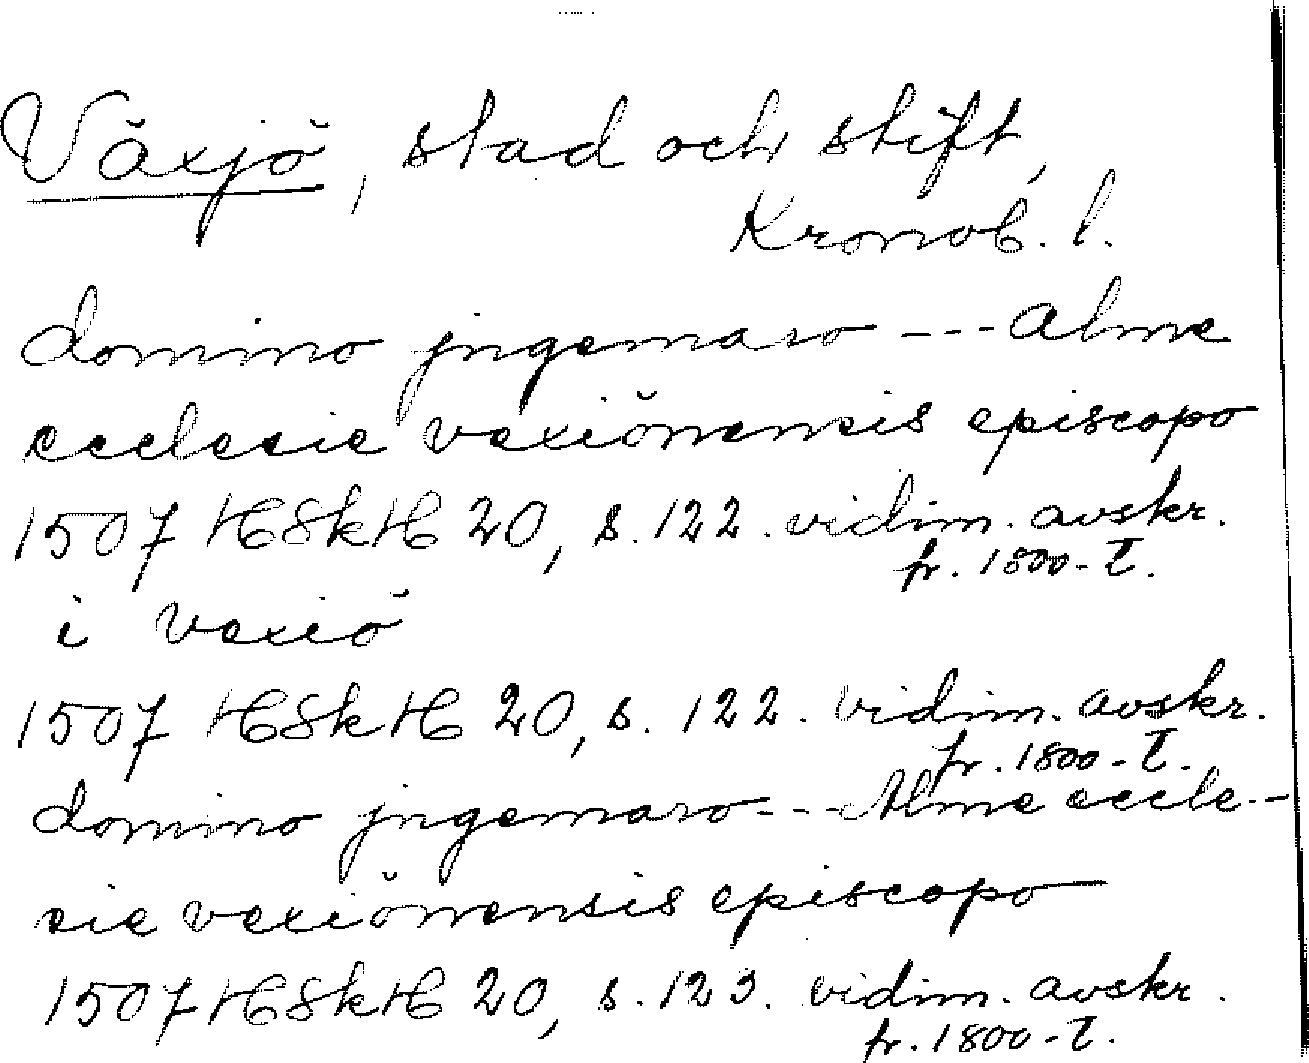 Växjö, stad och stift,
Kronob. l.
domino jngemaro --- alme
ecclesie vexiönensis episcopo
1507 HSkH 20, s. 122. vidim. avskr.
fr. 1800-t.
i vexiö
1507 HSkH 20, s. 122. vidim. avskr.
fr. 1800-t.
domino jngemaro --- Alme eccle-
sie vexiönensis episcopo
1507 HSkH 20, s. 123. vidim. avskr.
fr. 1800-t.